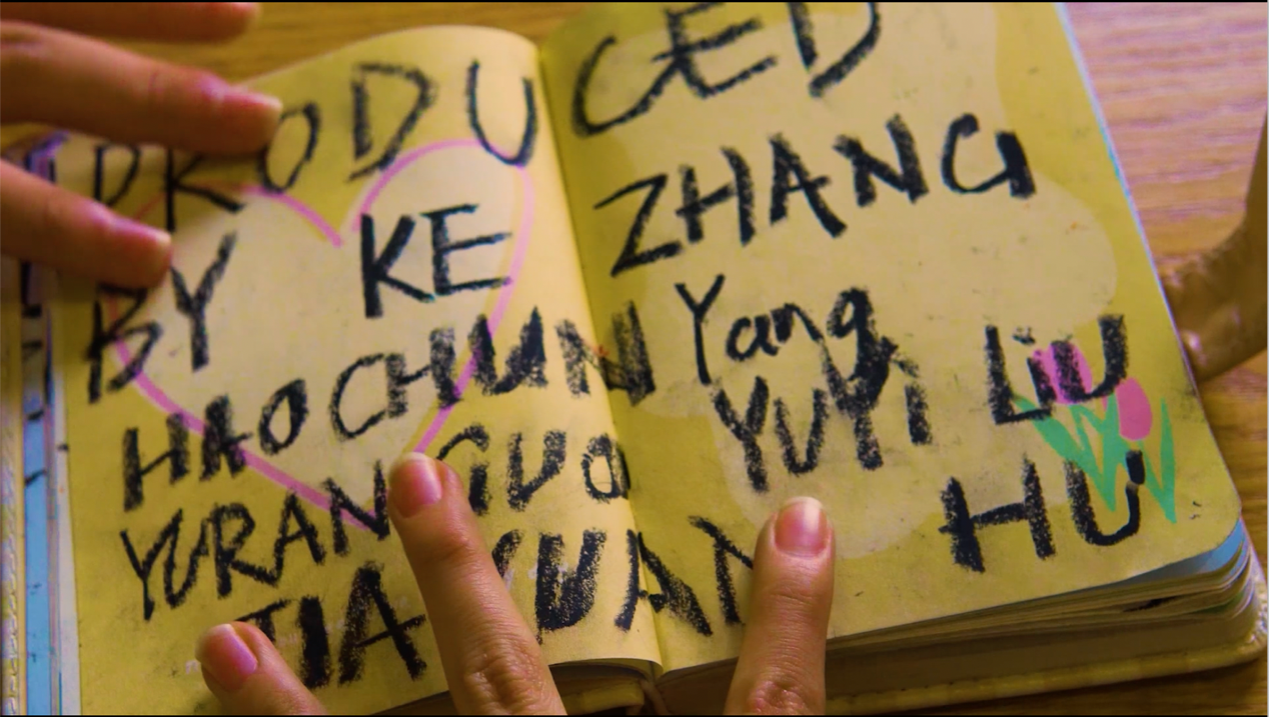 PRODUCED
BY KE ZHANG
HAOCHUN Yang
YURAN GUO YUYi LiU
JIAYUAN HU